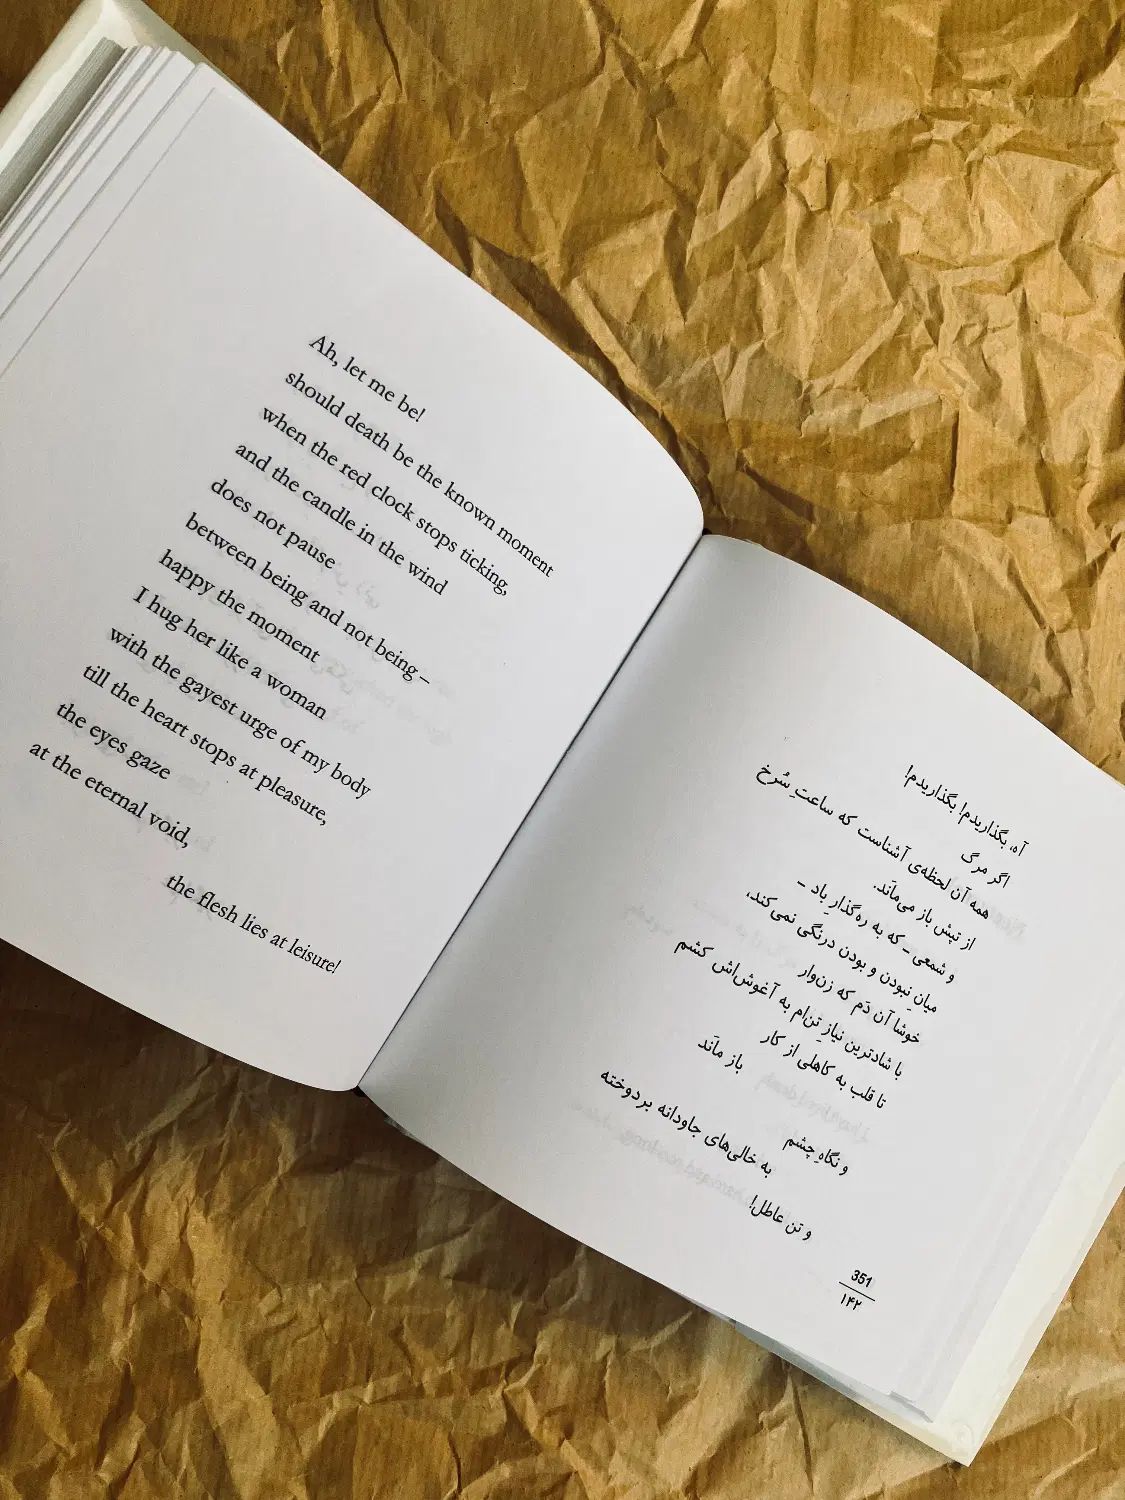 Ah, let me be!
should death be the known moment
when the red clock stops ticking,
and the candle in the wind
does not pause
between being and not being –
happy the moment
I hug her like a woman
with the gayest urge of my body
till the heart stops at pleasure,
the eyes gaze
at the eternal void,
the flesh lies at leisure!
آه، بگذاریدم! بگذاریدم!
اگر مرگ
همه آن لحظه‌ی آشناست که ساعتِ سُرخ
از تپش باز می‌مانَد.
و شمعی ـ که به ره‌گذارِ باد ـ
میانِ نبودن و بودن درنگی نمی‌کند،
خوشا آن دَم که زن‌وار
با شادترین نیازِ تن‌ام به آغوش‌اش کشم
تا قلب به کاهلی از کار
باز مانَد
و نگاهِ چشم
به خالی‌های جاودانه بردوخته
و تن عاطل!
351
۱۴۲